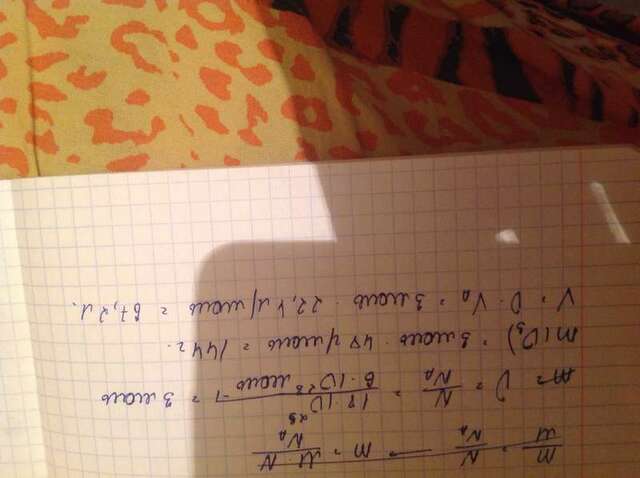 m/M = N/Nₐ — m = M·N/Nₐ
m= υ = N/Nₐ = 18·10²³ / 6·10²³ моль⁻¹ = 3 моль
m(O₃) = 3 моль · 48 г/моль = 144 г.
V = υ · Vₐ = 3 моль · 22,4 л/моль = 67,2 л.